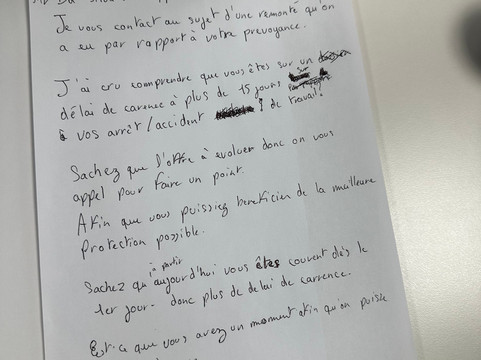 Je vous contact au sujet d'une remonté qu'on
a eu par rapport à votre prevoyance.
J'ai cru comprendre que vous êtes sur un
délai de carence à plus de 15 jours sur
vos arrêt / accident de travail?
Sachez que l'offre à évoluer donc on vous
appel pour faire un point.
Afin que vous puissiez beneficier de la meilleure
Protection possible.
à partir
Sachez qu'aujourd'hui vous êtes couvert dès le
1er jour. donc plus de delai de carrence.
Est-ce que vous avez un moment afin qu'on puisse